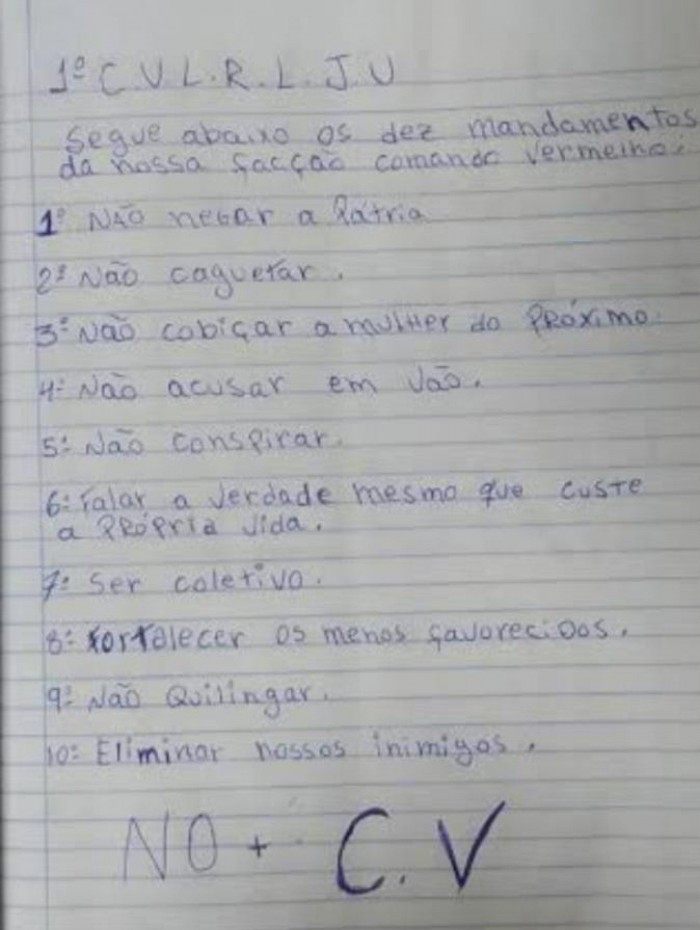 1º C.V.L.R.L.J.U
Segue abaixo os dez mandamentos
da nossa facção comando vermelho:
1º NÃO negar a Pátria
2º Não caguetar.
3º Não cobiçar a mulher do Próximo.
4º Não acusar em vão.
5º Não conspirar.
6º Falar a verdade mesmo que custe
a própria vida.
7º Ser coletivo.
8º Fortalecer os menos favorecidos.
9º Não Quilingar.
10º Eliminar nossos inimigos.
NO + C.V